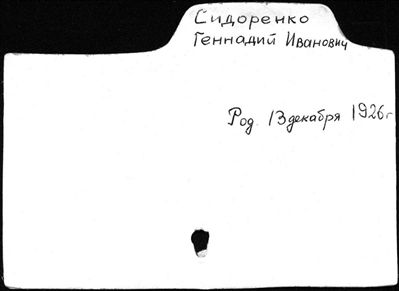 Сидоренко
Геннадий Иванович
Род. 13 декабря 1926г